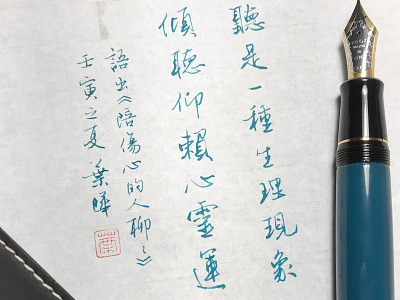 聽是一種生理現象
傾聽仰賴心靈運
語出《陪傷心的人聊聊》
壬寅之夏 葉曄
葉